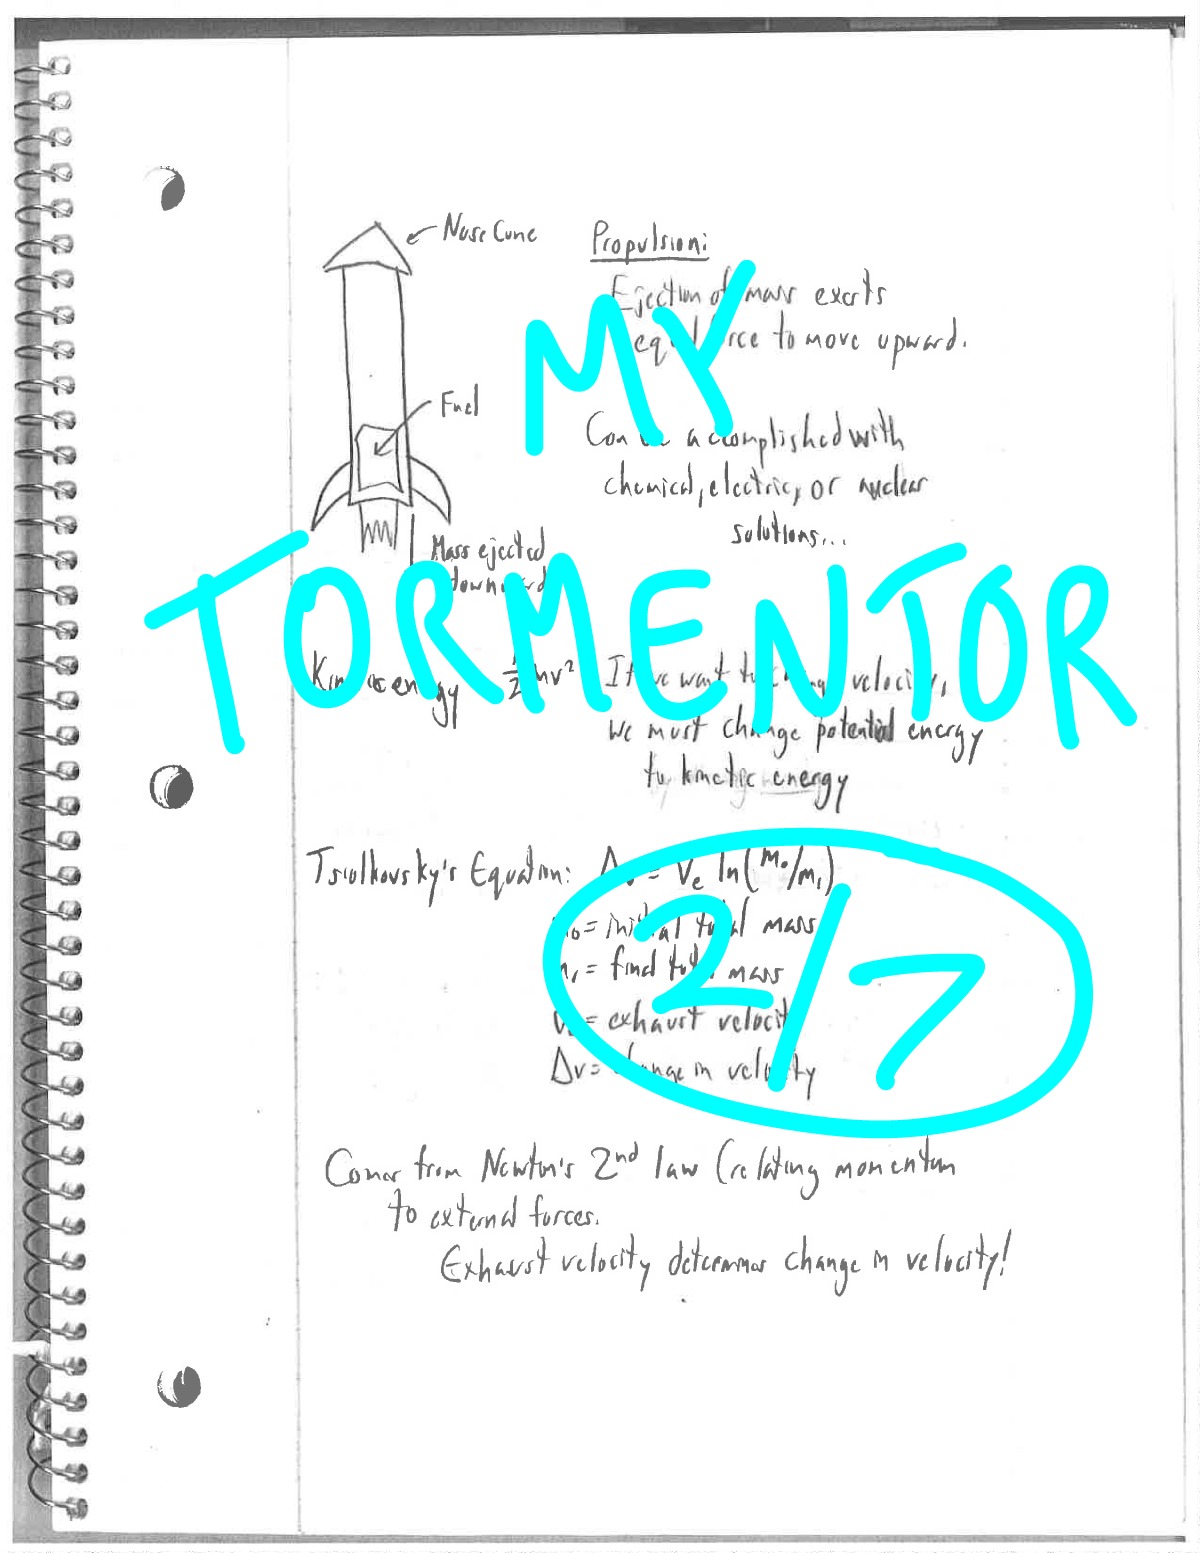 Nose Cone
Propulsion:
Ejection of mass exerts
equal force to move upward.
Fuel
Can be accomplished with
chemical, electric, or nuclear
solutions...
Mass ejected
downward
MY
TORMENTOR
Kinetic energy 1/2 mv²
If we want to change velocity,
we must change potential energy
to kinetic energy
Tsiolkovsky's Equation: Δv = Ve ln(m₀/m₁)
m₀ = initial total mass
m₁ = final total mass
Ve = exhaust velocity
Δv = change in velocity
2/7
Comes from Newton's 2nd law (relating momentum
to external forces.
Exhaust velocity determines change in velocity!